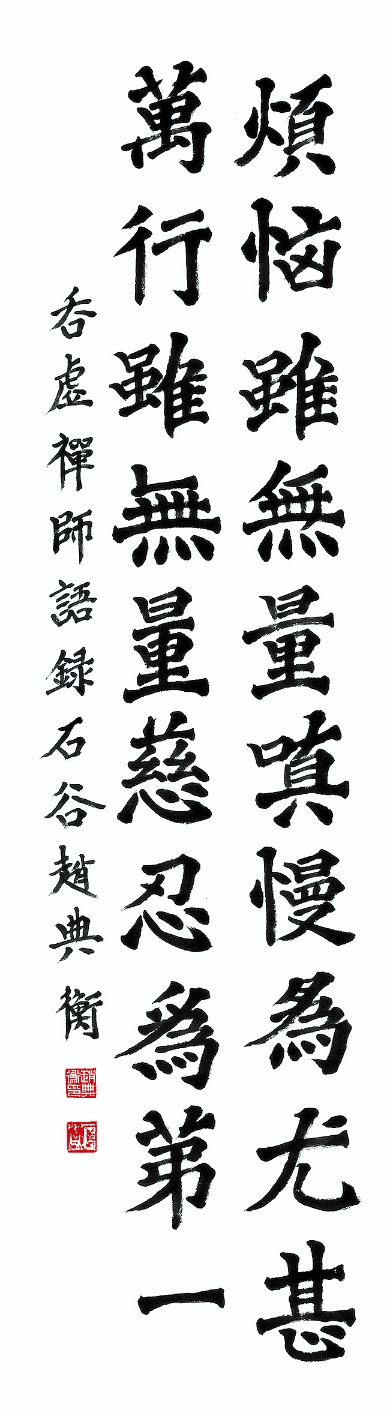 煩恼雖無量嗔慢為尤甚
萬行雖無量慈忍爲第一
呑虛禪師語録石谷趙典衡